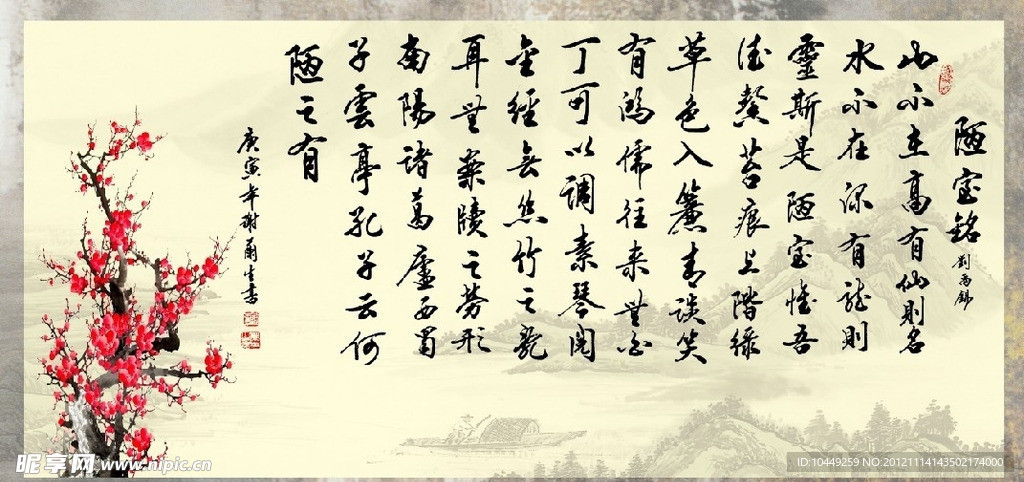 陋室銘 劉禹錫
山不在高有仙則名
水不在深有龍則
靈斯是陋室惟吾
德馨苔痕上階綠
草色入簾青談笑
有鴻儒往来無白
丁可以調素琴閱
金經無絲竹之亂
耳無案牘之勞形
南陽諸葛廬西蜀
子雲亭孔子云何
陋之有
庚寅年謝爾書
昵享网 www.nipic.cn
ID:10449259 NO:20121114143502174000